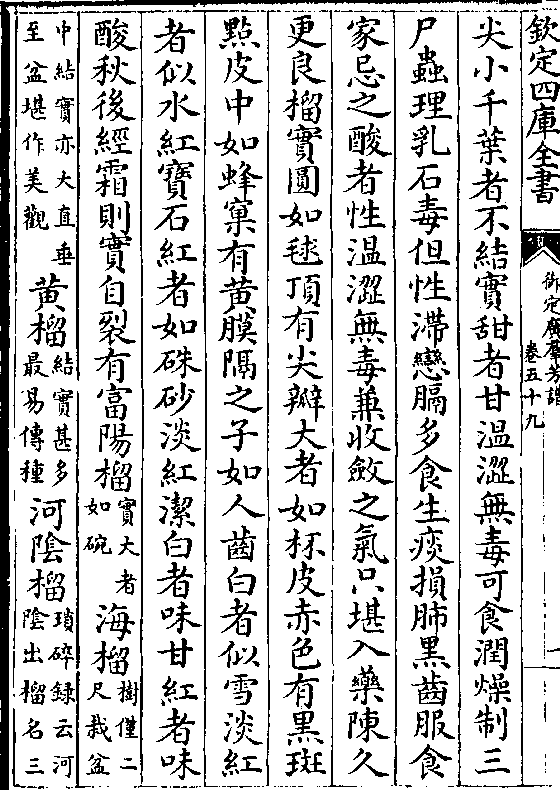 欽定四庫全書
御定廣羣芳譜
卷五十九
尖小千葉者不結實甜者甘溫澀無毒可食潤燥制三
尸蟲理乳石毒但性滯戀膈多食生痰損肺黑齒服食
家忌之酸者性溫澀無毒兼收斂之氣只堪入藥陳久
更良榴實圓如毬頂有尖瓣大者如杯皮赤色有黑斑
㸃皮中如蜂窠有黄膜隔之子如人齒白者似雪淡紅
者似水紅寶石紅者如硃砂淡紅潔白者味甘紅者味
酸秋後經霜則實自裂有富陽榴實大者如碗海榴樹僅二尺栽盆
中結實亦大直垂至盆堪作美觀黄榴結實甚多最易傳種河陰榴瑣碎錄云河陰出榴名三